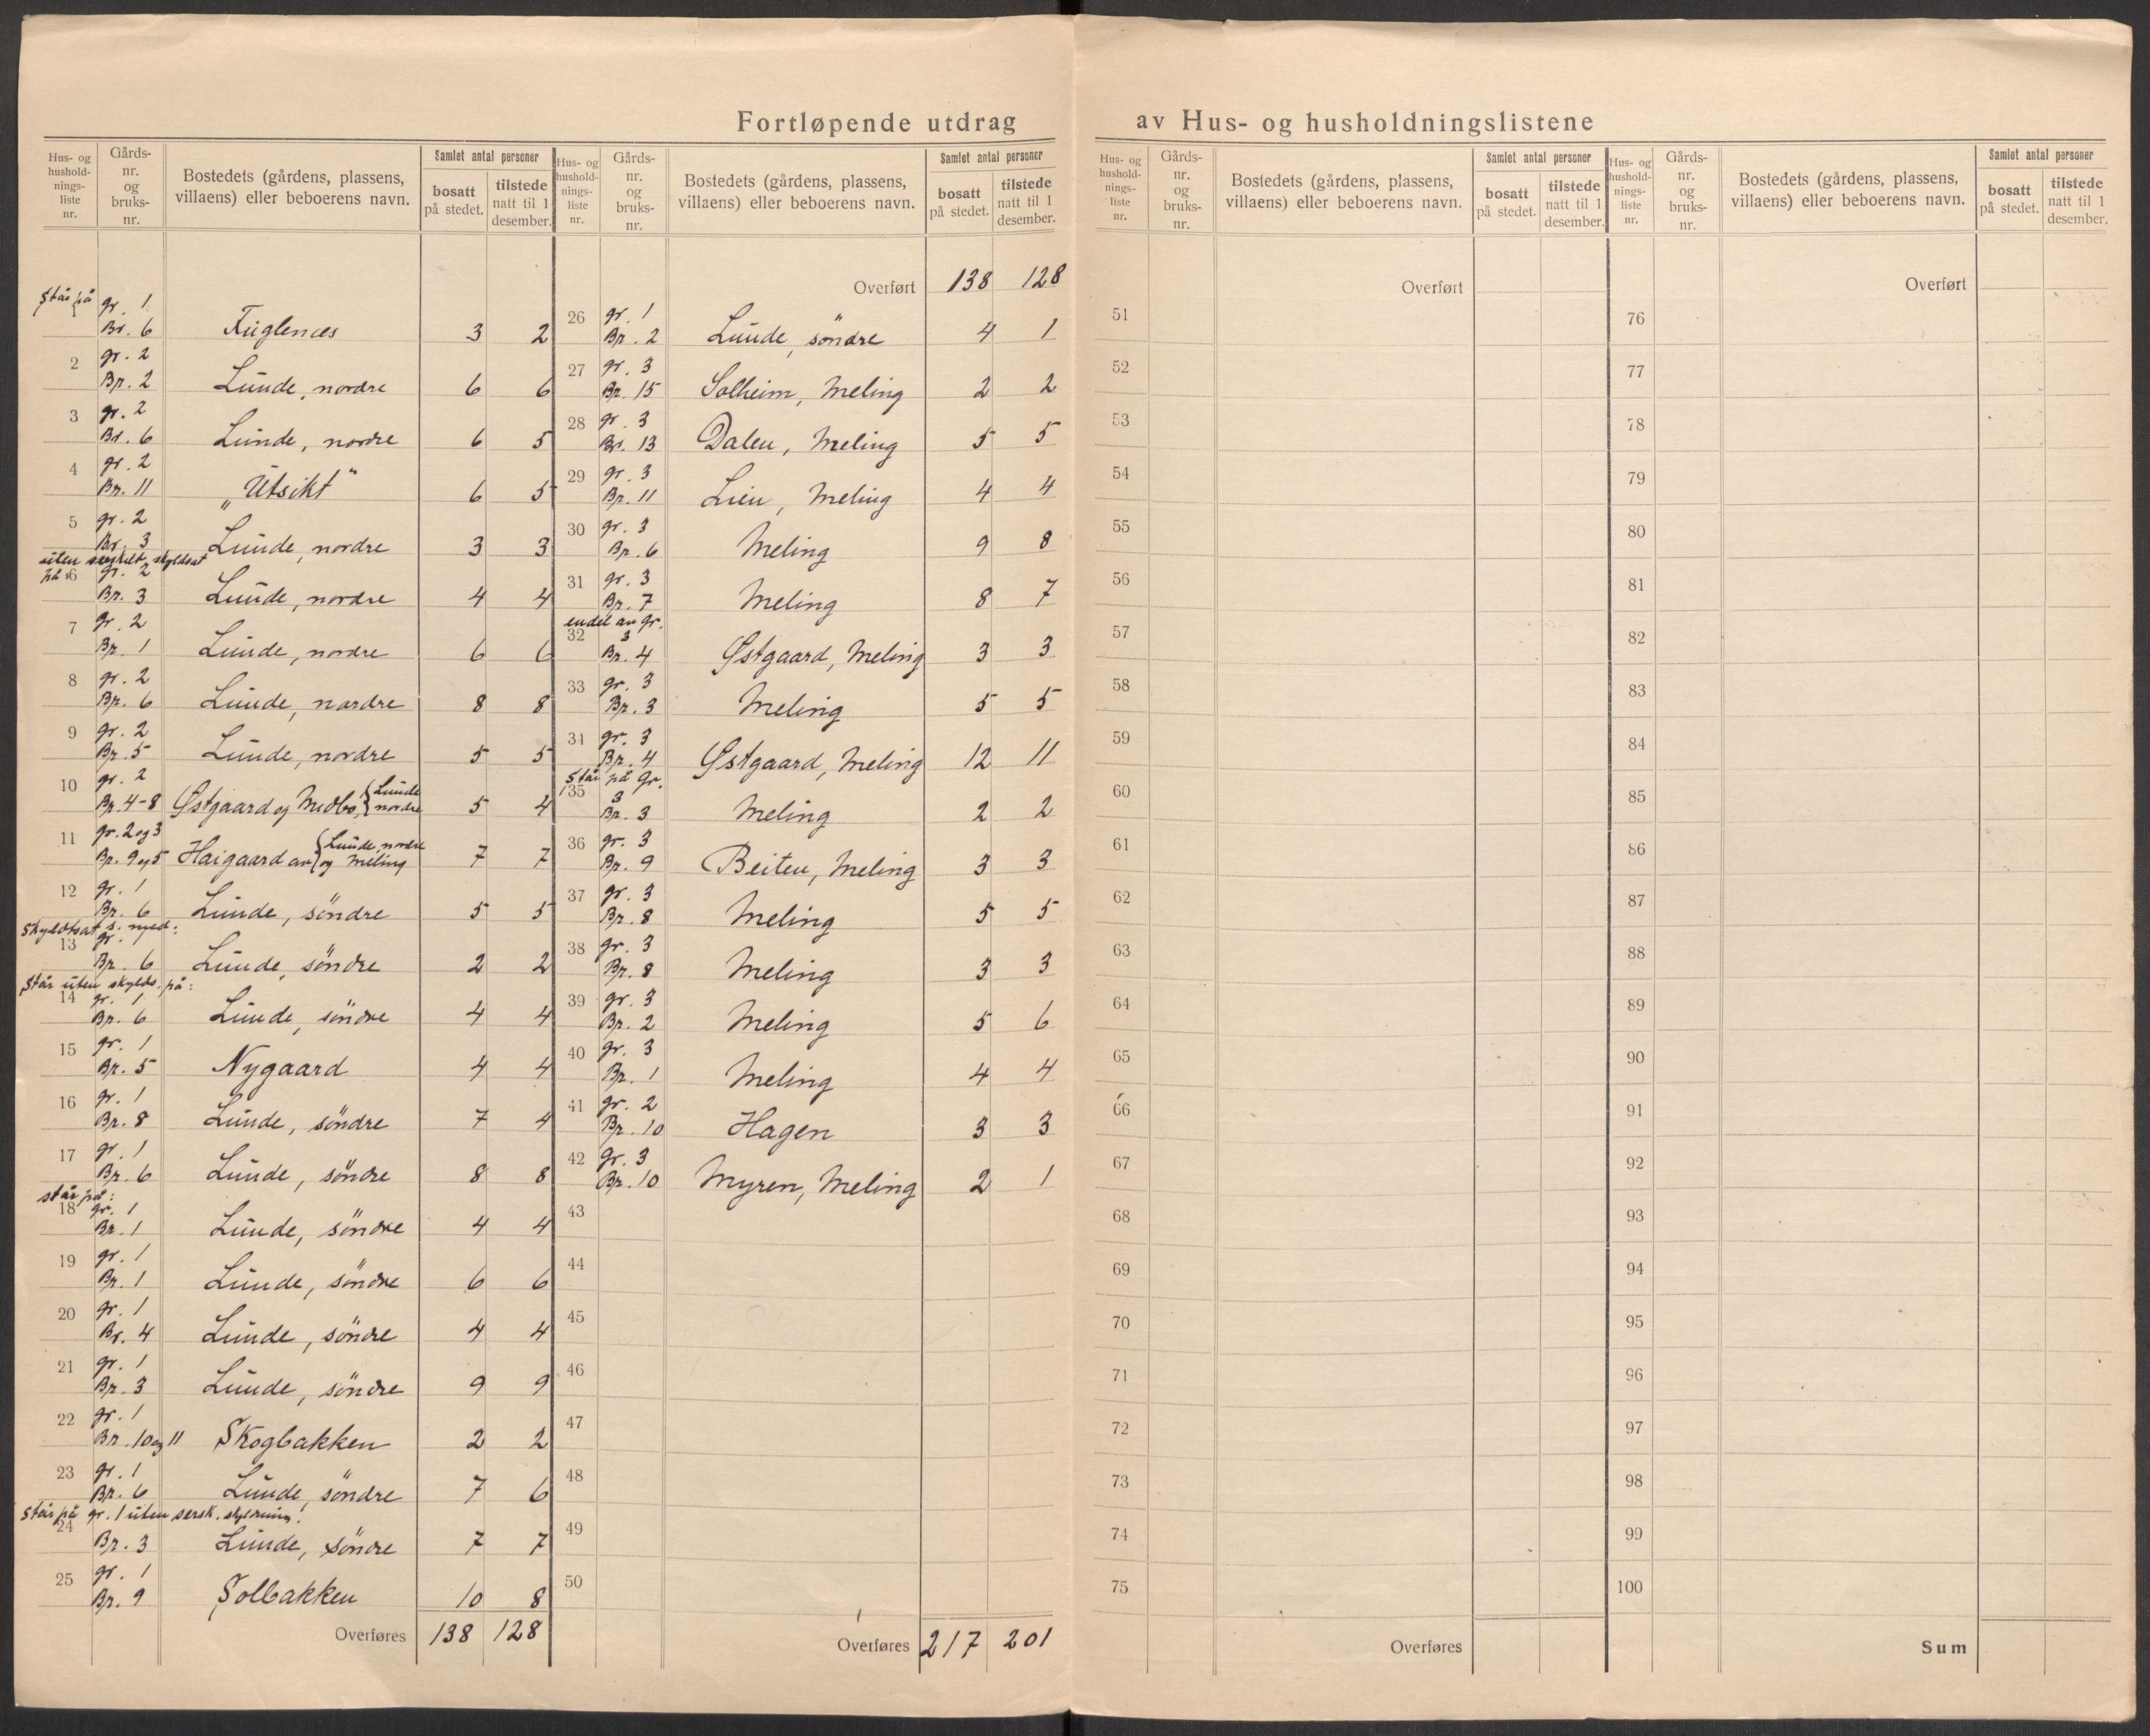 Fortløpende utdrag av Hus- og husholdningslistene
Hus- og husholdnings-liste nr. | Gårds-nr. og bruks-nr. | Bostedets (gårdens, plassens, villaens) eller beboerens navn. | Samlet antal personer | bosatt på stedet. | tilstede natt til 1 desember.
Står på
1 gr. 1 Br. 6 Fuglenæs 3 2
2 gr. 2 Br. 2 Lunde, nordre 6 6
3 gr. 2 Br. 6 Lunde, nordre 6 5
4 gr. 2 Br. 11 „Utsikt“ 6 5
5 gr. 2 Br. 3 Lunde, nordre 3 3
uten særskilt skyldsat på
6 gr. 2 Br. 3 Lunde, nordre 4 4
7 gr. 2 Br. 1 Lunde, nordre 6 6
8 gr. 2 Br. 6 Lunde, nordre 8 8
9 gr. 2 Br. 5 Lunde, nordre 5 5
10 gr. 2 Br. 4-8 Østgaard og Medbø, { Lunde nordre 5 4
11 gr. 2 og 3 Br. 9 og 5 Haigaard av { Lunde, nordre og Meling 7 7
12 gr. 1 Br. 6 Lunde, søndre 5 5
Skyldsat s. med:
13 gr. 1 Br. 6 Lunde, søndre 2 2
Står uten skylds. på:
14 gr. 1 Br. 6 Lunde, söndre 4 4
15 gr. 1 Br. 5 Nygaard 4 4
16 gr. 1 Br. 8 Lunde, söndre 7 4
17 gr. 1 Br. 6 Lunde, söndre 8 8
står på:
18 gr. 1 Br. 1 Lunde, söndre 4 4
19 gr. 1 Br. 1 Lunde, söndre 6 6
20 gr. 1 Br. 4 Lunde, söndre 4 4
21 gr. 1 Br. 3 Lunde, söndre 9 9
22 gr. 1 Br. 10 og 11 Skogbakken 2 2
23 gr. 1 Br. 6 Lunde, söndre 7 6
Står på gr. 1 uten sersk. skyldning.
24 Br. 3 Lunde, söndre 7 7
25 gr. 1 Br. 9 Solbakken 10 8
Overføres 138 128
Hus- og husholdnings-liste nr. | Gårds-nr. og bruks-nr. | Bostedets (gårdens, plassens, villaens) eller beboerens navn. | Samlet antal personer | bosatt på stedet. | tilstede natt til 1 desember.
Overført 138 128
26 gr. 1 Br. 2 Lunde, söndre 4 1
27 gr. 3 Br. 15 Solheim, Meling 2 2
28 gr. 3 Br. 13 Dalen, Meling 5 5
29 gr. 3 Br. 11 Lien, Meling 4 4
30 gr. 3 Br. 6 Meling 9 8
31 gr. 3 Br. 7 Meling 8 7
endel av gr.
32 3 Br. 4 Østgaard, Meling 3 3
33 gr. 3 Br. 3 Meling 5 5
34 gr. 3 Br. 4 Østgaard, Meling 12 11
Står på gr.
35 3 Br. 3 Meling 2 2
36 gr. 3 Br. 9 Beiten, Meling 3 3
37 gr. 3 Br. 8 Meling 5 5
38 gr. 3 Br. 8 Meling 3 3
39 gr. 3 Br. 2 Meling 5 6
40 gr. 3 Br. 1 Meling 4 4
41 gr. 2 Br. 10 Hagen 3 3
42 gr. 3 Br. 10 Myren, Meling 2 1
43
44
45
46
47
48
49
50
Overføres 217 201
Hus- og husholdnings-liste nr. | Gårds-nr. og bruks-nr. | Bostedets (gårdens, plassens, villaens) eller beboerens navn. | Samlet antal personer | bosatt på stedet. | tilstede natt til 1 desember.
Overført
51
52
53
54
55
56
57
58
59
60
61
62
63
64
65
66
67
68
69
70
71
72
73
74
75
Overføres
Hus- og husholdnings-liste nr. | Gårds-nr. og bruks-nr. | Bostedets (gårdens, plassens, villaens) eller beboerens navn. | Samlet antal personer | bosatt på stedet. | tilstede natt til 1 desember.
Overført
76
77
78
79
80
81
82
83
84
85
86
87
88
89
90
91
92
93
94
95
96
97
98
99
100
Sum